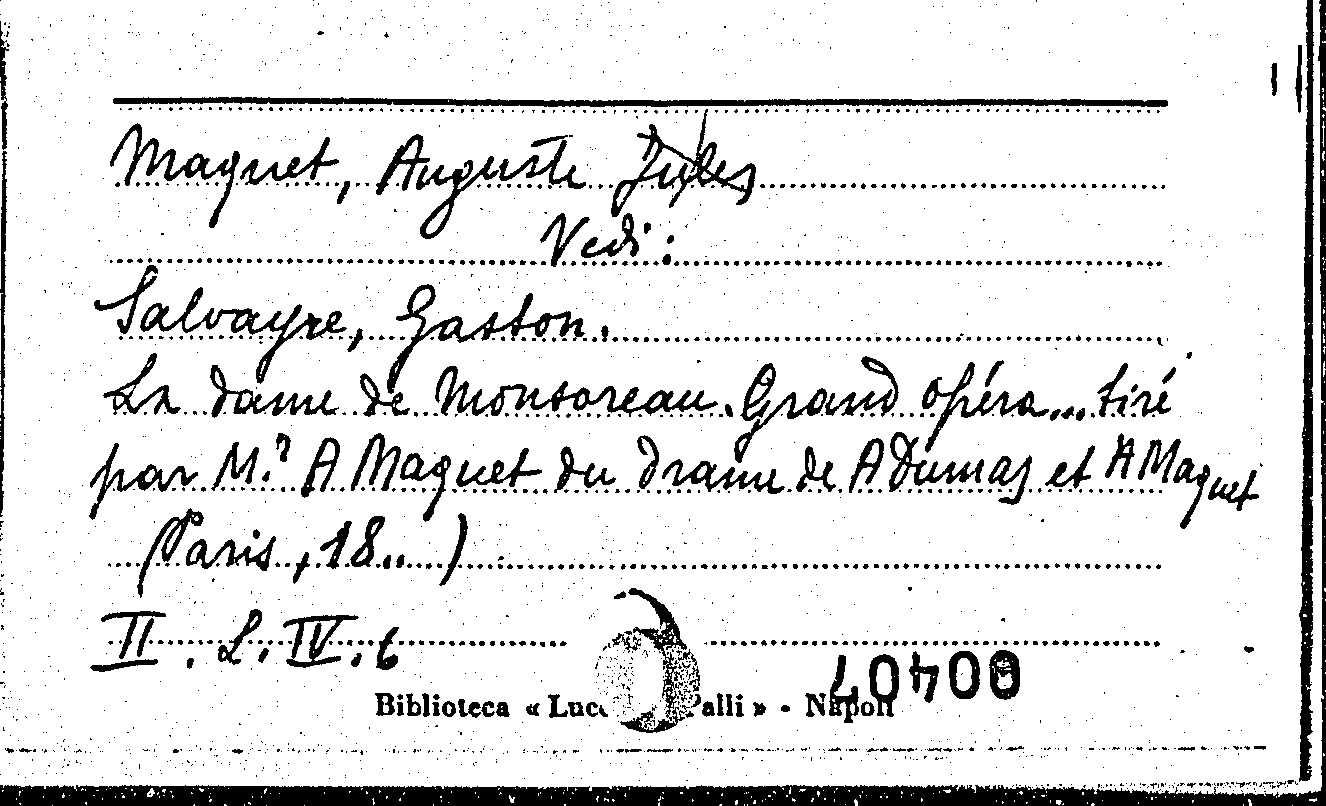 Maquet, Auguste Jules
Vedi:
Salvayre, Gaston.
La dame de Monsoreau. Grand opéra... tiré
par M.r A Maquet du drame de A Dumas et A Maquet
(Paris, 18.. )
II. L. IV. 6
00407
Biblioteca « Lucc alli » - Napoli